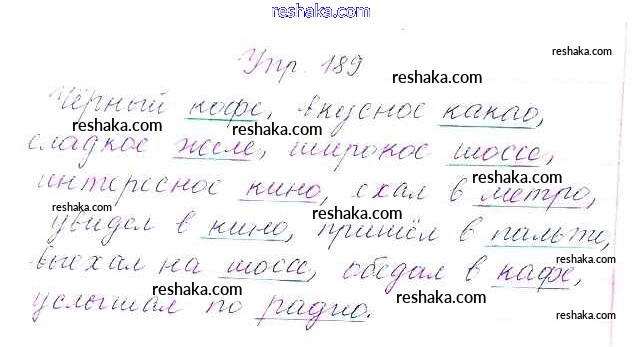 reshaka.com
Упр. 189
reshaka.com
reshaka.com
Чёрный кофе, вкусное какао,
reshaka.com
reshaka.com
reshaka.com
сладкое желе, широкое шоссе,
reshaka.com
интересное кино, ехал в метро,
reshaka.com
reshaka.com
reshaka.com
увидел в кино, пришёл в пальто,
reshaka.com
выехал на шоссе, обедал в кафе,
reshaka.com
reshaka.com
reshaka.com
услышал по радио.